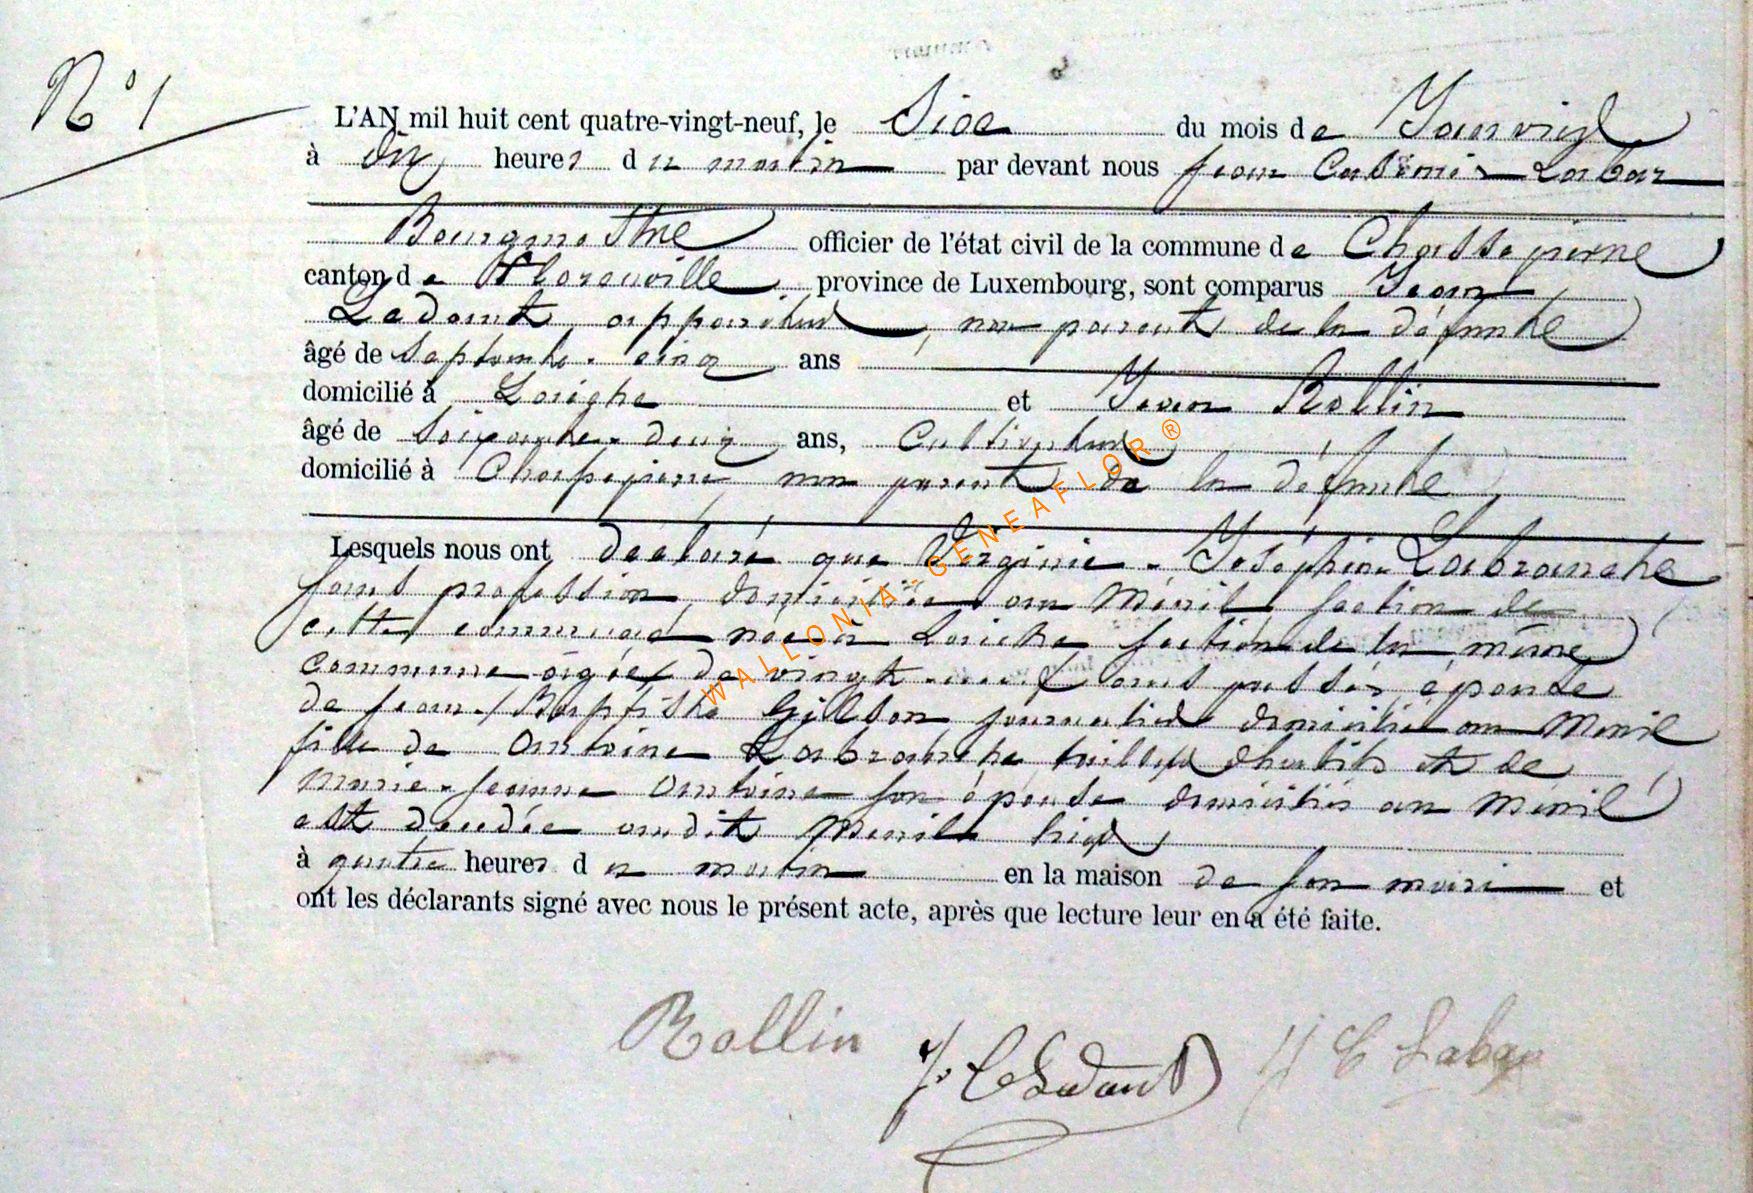 N° 1
L'AN mil huit cent quatre-vingt-neuf, le Six du mois de Janvier
à dix heures du matin par devant nous Jean Casimir Labar
Bourgmestre officier de l'état civil de la commune de Chassepierre
canton de Florenville province de Luxembourg, sont comparus Jean
Ledant, appariteur, non parent de la défunte
âgé de Septante-cinq ans
domicilié à Laiche et Jean Rollin
âgé de Soixante-deux ans, Cultivateur
domicilié à Chassepierre, non parent de la défunte
Lesquels nous ont déclaré que Virginie-Joséphine Labranche
sans profession, domiciliée au Ménil section de
cette commune née à Laiche section de la même
commune âgée de vingt-neuf ans passés, épouse
de Jean-Baptiste Gilson journalier domicilié au Ménil
fille de Antoine Labranche tailleur d'habits et de
Marie-Jeanne Antoine son épouse domiciliés au Ménil
est décédée audit Menil hier,
à quatre heures du matin en la maison de son mari et
ont les déclarants signé avec nous le présent acte, après que lecture leur en a été faite.
Rollin J. Ledant J C Labar
WALLONIA - GENEAFLOR ®